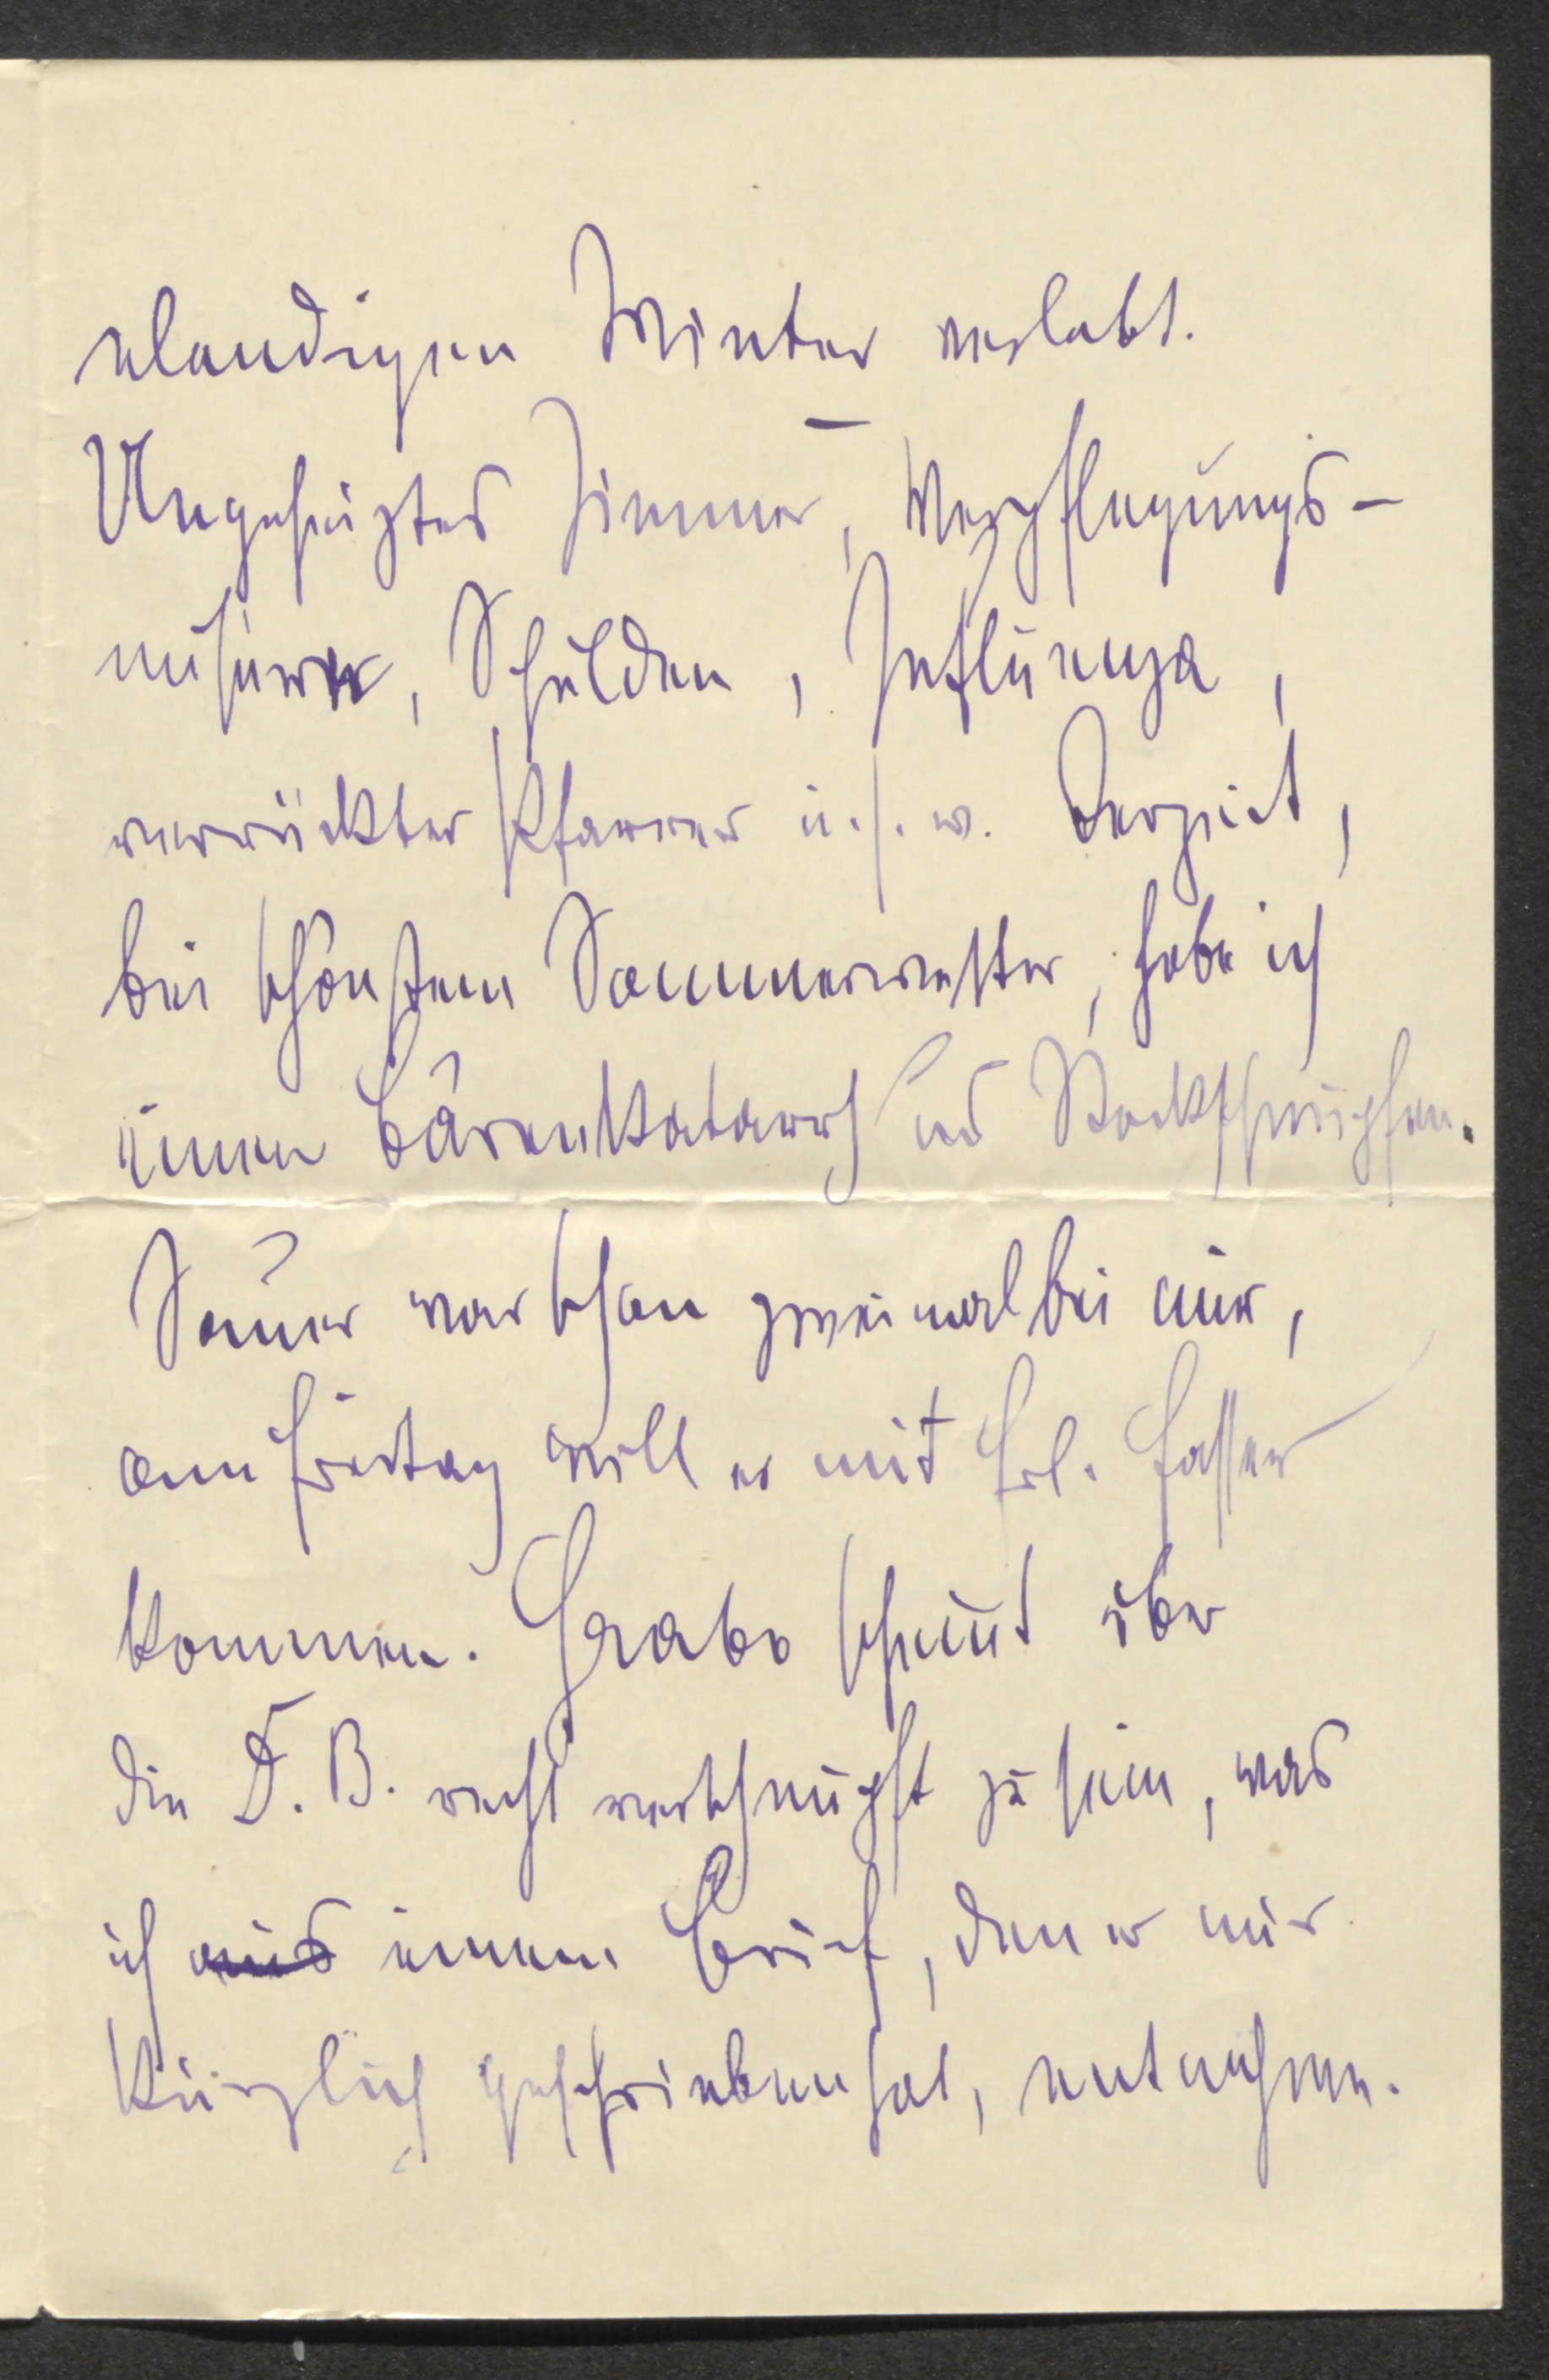 elendigen Winter verlebt.
Ungeheiztes Zimmer, Verpflegungs-
misere, Schulden, Influenza,
verrückter Pfarrer u. s. w. Derzeit,
bei schönstem Sommerwetter, habe ich
einen Bärenkatarrh und Stockschnupfen.
Sauer war schon zweimal bei mir,
am Freitag will er mit Frl. Fasser
kommen. Grabo scheint über
die D. B. recht verschnupft zu sein, was
ich aus einem Brief, den er mir
kürzlich geschrieben hat, entnehme.